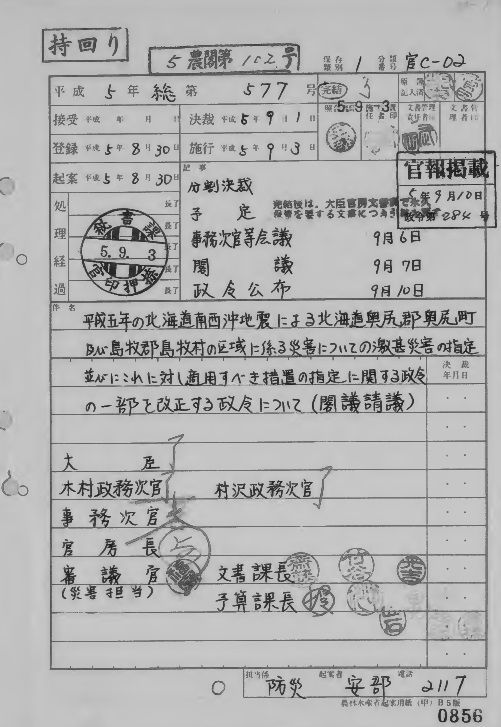 持回り
5農閣第102号
保存類別 1 分類番号 官C-02
平成 5 年 総 第 577 号
完結
5.9.3
接受 平成 年 月 日
決裁 平成 5 年 9 月 1 日
登録 平成 5 年 8 月 30 日
施行 平成 5 年 9 月 3 日
起案 平成 5 年 8 月 30 日
記事
分割決裁
官報掲載
5年9月10日
政令第284号
予定
処理経過
秘書課
5.9.3
官印押捺
事務次官等会議 9月6日
閣議 9月7日
政令公布 9月10日
件名
平成五年の北海道南西沖地震による北海道奥尻郡奥尻町
及び島牧郡島牧村の区域に係る災害についての激甚災害の指定
並びにこれに対し適用すべき措置の指定に関する政令
の一部を改正する政令について(閣議請議)
決裁年月日
大臣
木村政務次官 村沢政務次官
事務次官
官房長
審議官 文書課長
(災害担当) 予算課長
担当係 防災 起案者 安部 電話 2117
農林水産省起案用紙(甲)B5版
0856